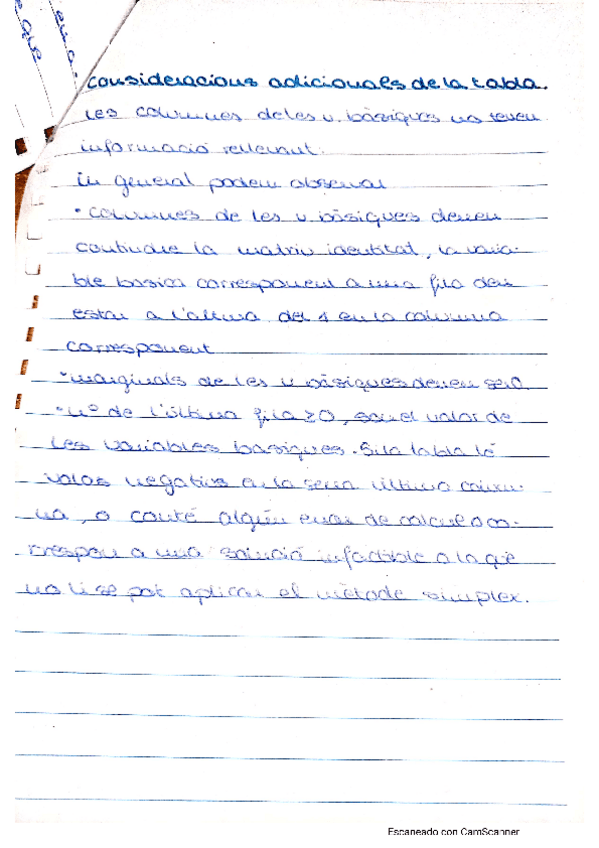 que
en a.
consideracions adicionals de la tabla.
les columnes de les v. bàsiques no tenen
informació rellevant.
in general podem observar
• columnes de les v. bàsiques deuen
contindre la matriu identitat, la varia-
ble basica corresponent a una fila deu
estar a l'altura del 1 en la columna
corresponent
• marginals de les v bàsiques deuen ser 0
• nº de l'última fila ≥0, son el valor de
les variables basiques. Si la tabla té
valors negatius a la seua última colum-
na, o conté algún error de calcul o co-
rrespon a una solució infactible a la que
no li se pot aplicar el mètode simplex.
Escaneado con CamScanner